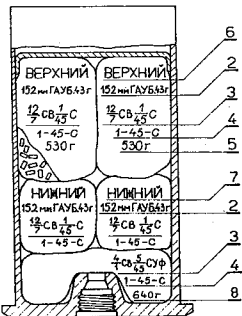 ВЕРХНИЙ
152 мм ГАУБ.43г
12/7 СВ 1/45 С
1-45-С
530г
ВЕРХНИЙ
152 мм ГАУБ.43г
12/7 СВ 1/45 С
1-45-С
530г
НИЖНИЙ
152 мм ГАУБ.43г
12/7 СВ 1/45 С
1-45-С
НИЖНИЙ
152 мм ГАУБ.43г
12/7 СВ 1/45 С
1-45-С
4/1 СВ 5/45 СУФ
1-45-С
640г
6
2
3
4
5
7
2
3
4
8